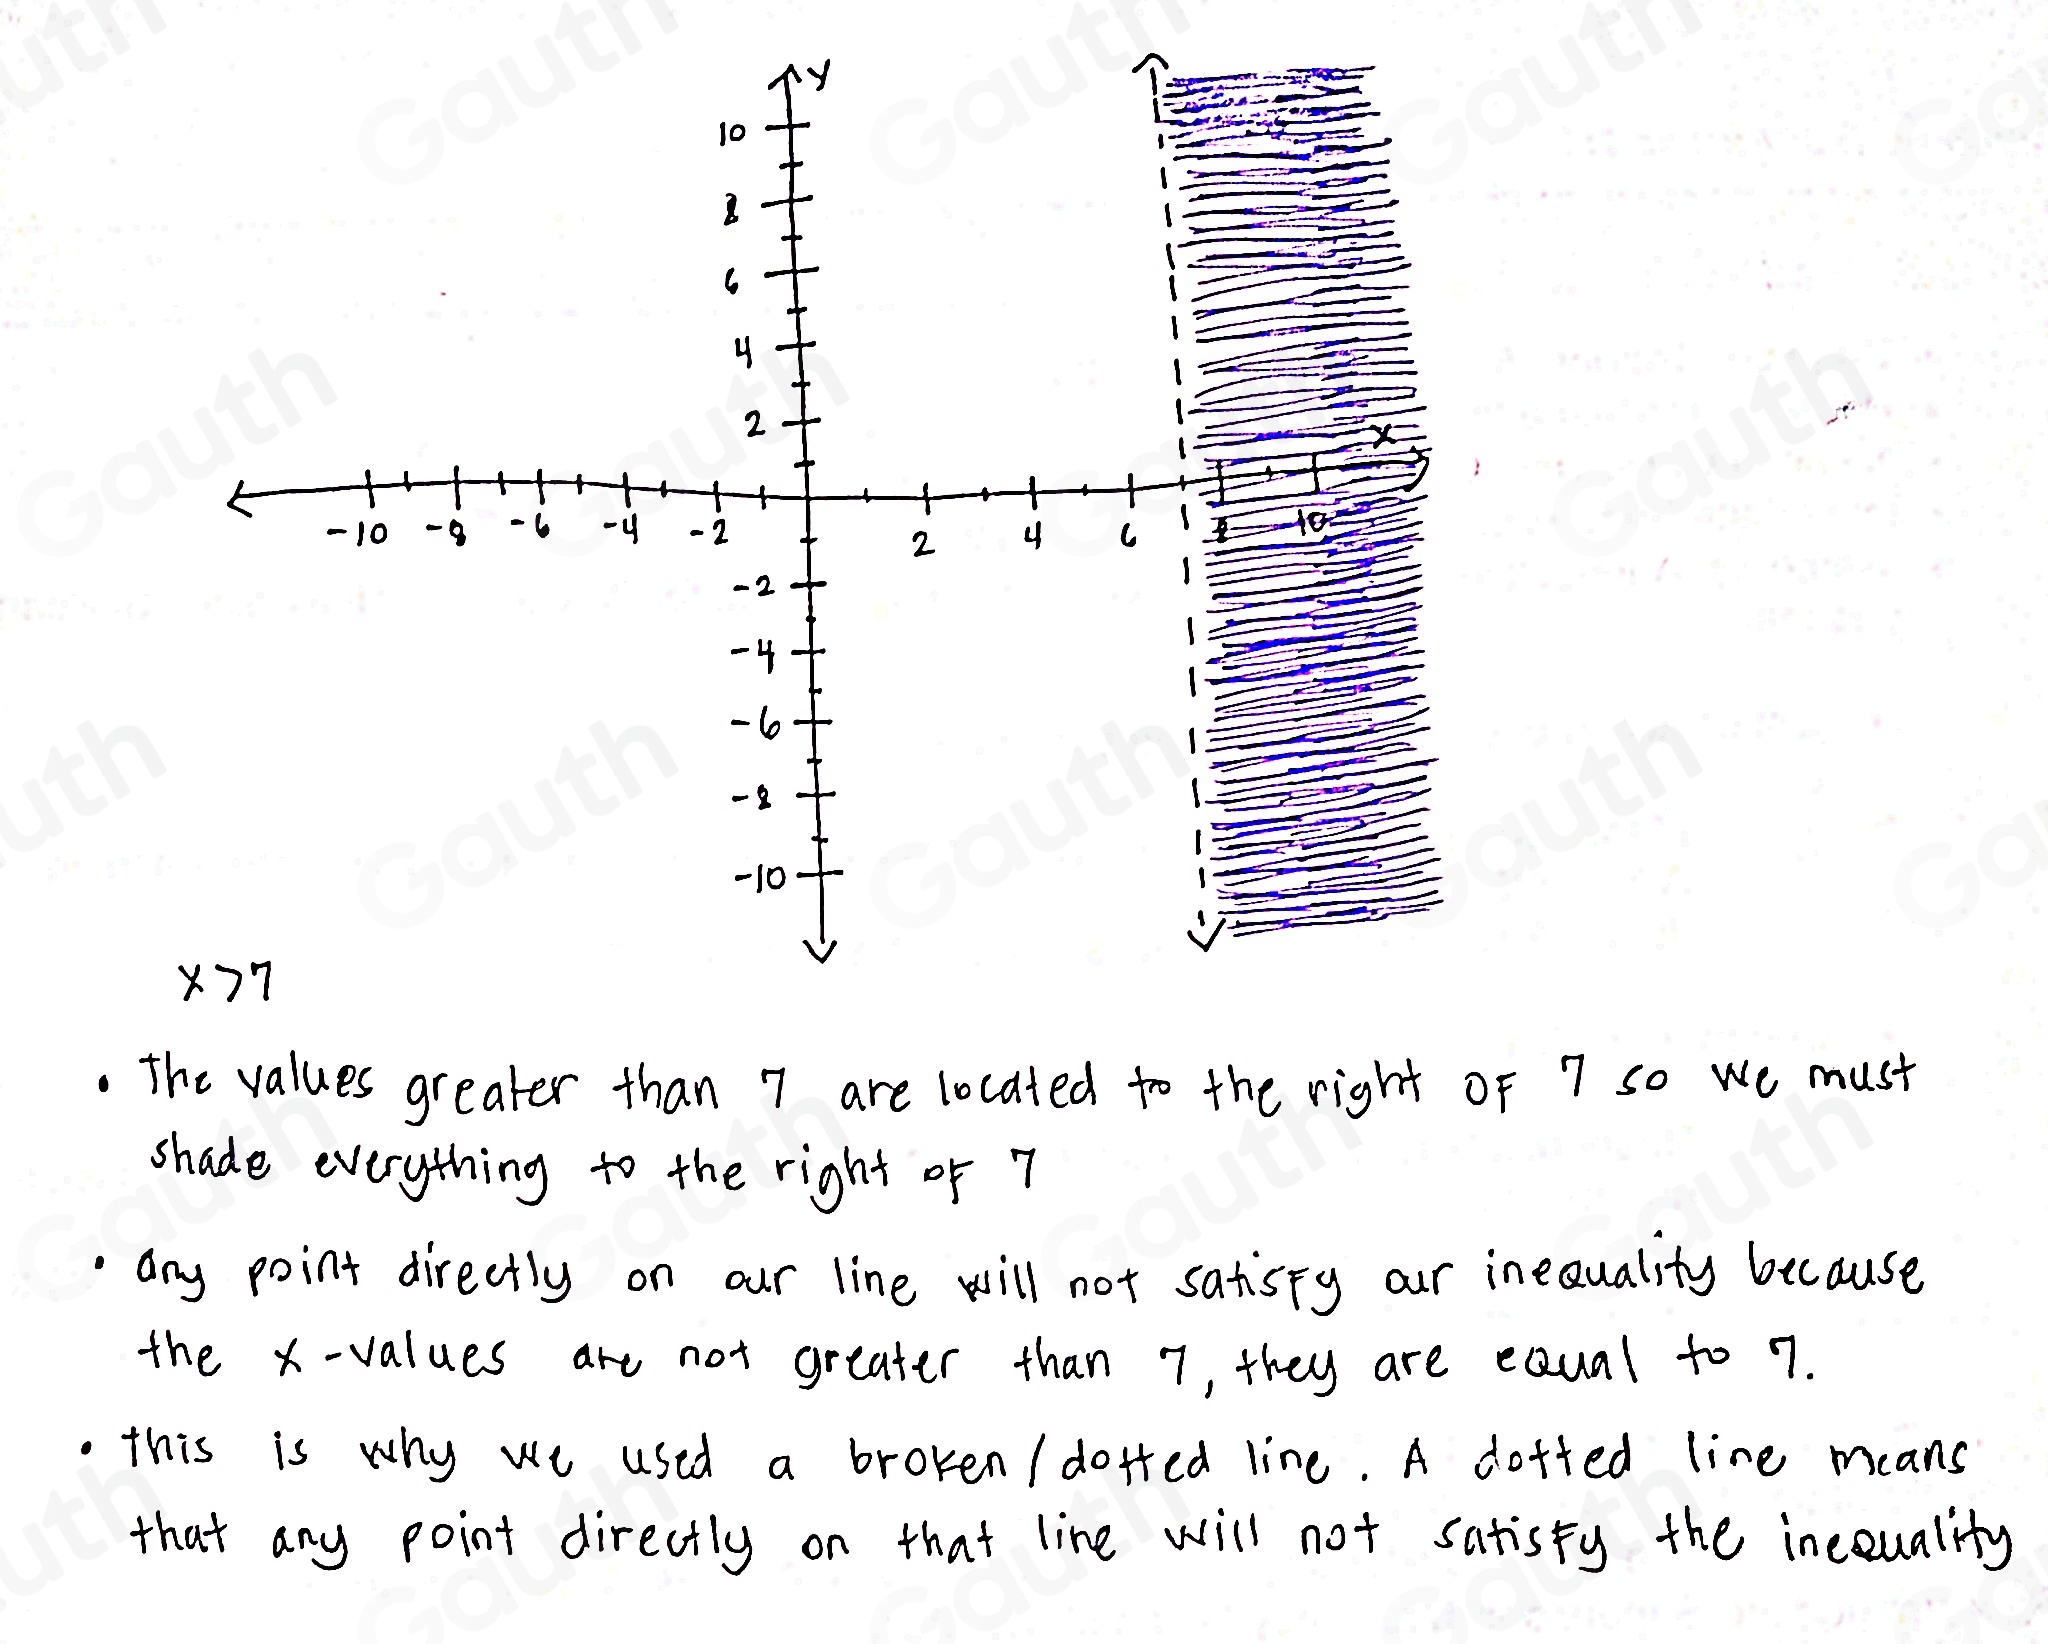 Y
10
8
6
4
2
x
-10 -8 -6 -4 -2 2 4 6 8 10
-2
-4
-6
-8
-10
x>7
• The values greater than 7 are located to the right of 7 so we must
shade everything to the right of 7
• any point directly on our line will not satisfy our inequality because
the x-values are not greater than 7, they are equal to 7.
• this is why we used a broken/dotted line. A dotted line means
that any point directly on that line will not satisfy the inequality
Gauth